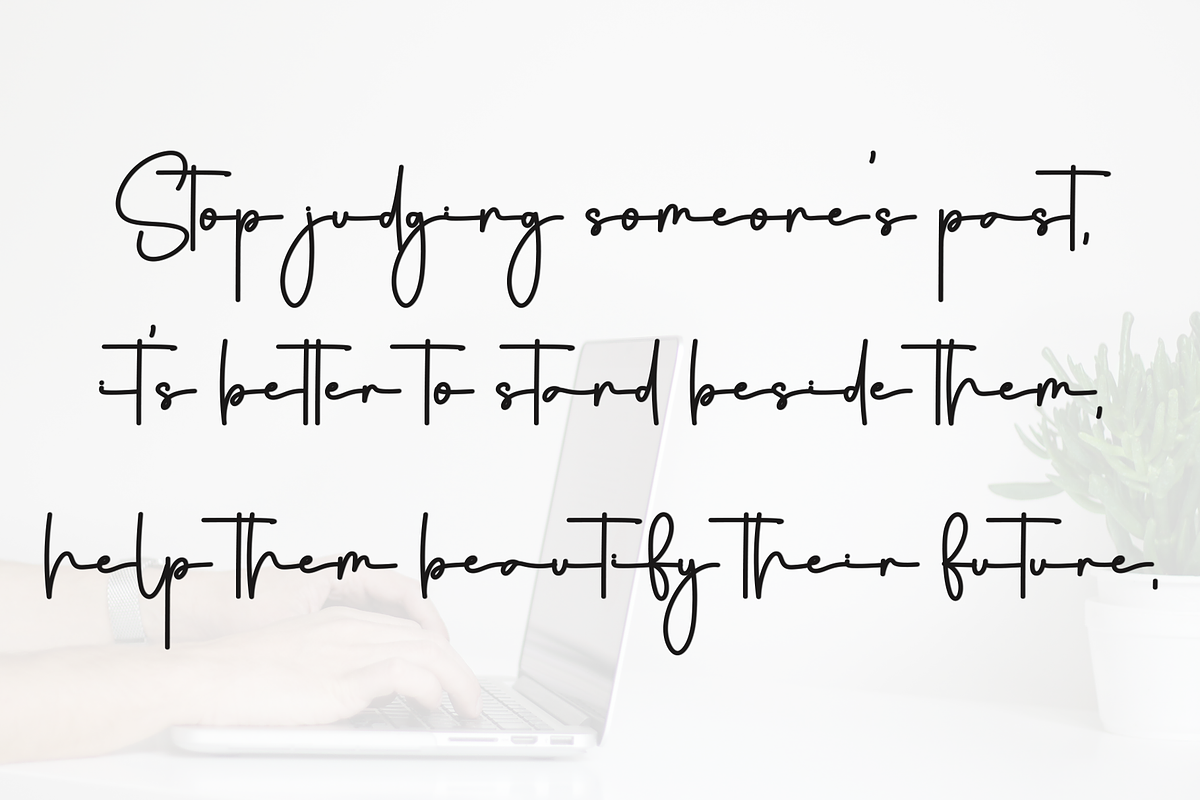 Stop judging someone's past,
it's better to stand beside them,
help them beautify their future,